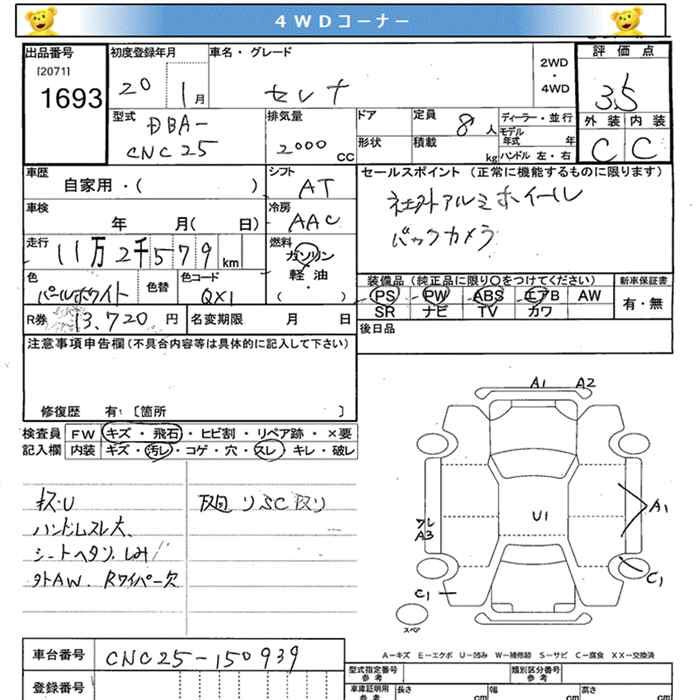 4WDコーナー
出品番号 初度登録年月 車名・グレード 評価点
[2071]
1693
20 1月 セレナ 2WD・4WD 3.5
型式 排気量 ドア 定員 ディーラー・並行 外装 内装
DBA-
CNC25 2000 CC 形状 積載 kg 8人 モデル年式 年 ハンドル 左・右 C C
車歴 シフト セールスポイント (正常に機能するものに限ります)
自家用・( ) AT 社外アルミホイール
車検 冷房 バックカメラ
年 月( 日) AAC
走行 燃料
11万2千579km ガソリン・軽油・( )
色 色替 色コード 装備品 (純正品に限り○をつけてください) 新車保証書
パールホワイト QX1 PS PW ABS エアB AW 有・無
SR ナビ TV カワ
R券 13,720円 名変期限 月 日 後日品
注意事項申告欄(不具合内容等は具体的に記入して下さい)
修復歴 有:〔箇所 〕
A1 A2
検査員 FW キズ・飛石・ヒビ割・リペア跡・×要
記入欄 内装 キズ・汚レ・コゲ・穴・スレ・キレ・破レ
キズ・U
ハンドルスレ大、
シートヘタリ、しみ
外AW、Rワイパー欠
U1
A1
ワレ
A3
C1
C1
スペア
A-キズ E-エクボ U-凹み W-補修跡 S-サビ C-腐食 XX-交換済
車台番号 CNC25-150939
型式指定番号 参考 類別区分番号 参考
登録番号 車庫証明用 参考 長さ cm 幅 cm 高さ cm